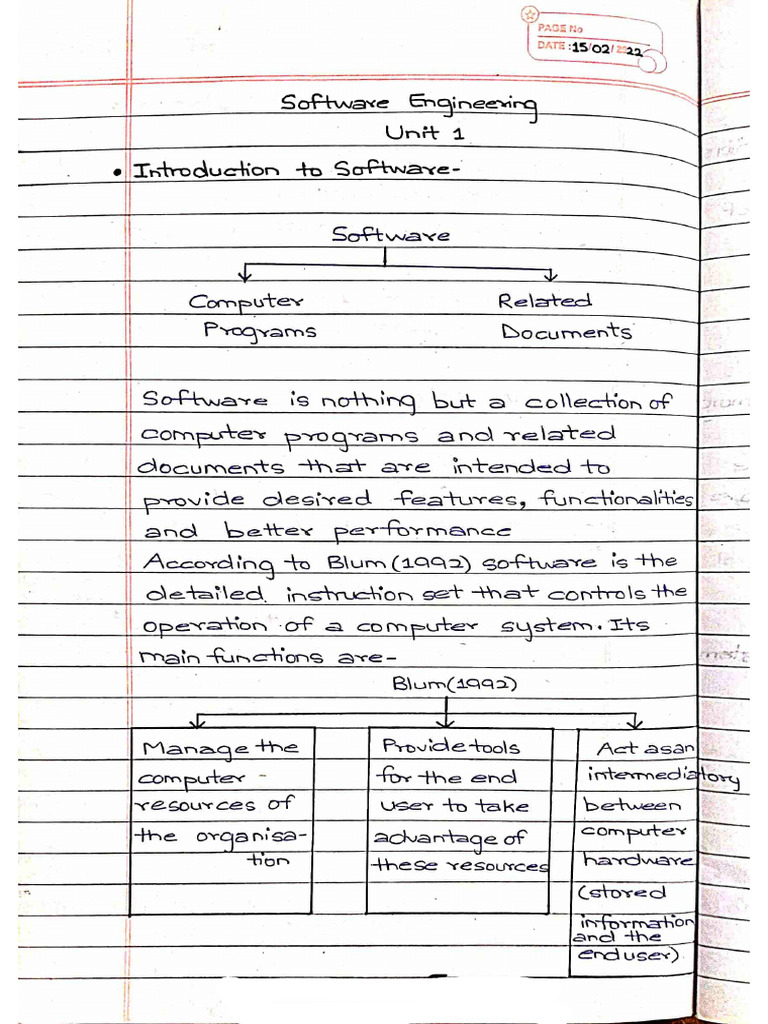 PAGE No
DATE: 15/02/2022
Software Engineering
Unit 1
• Introduction to Software-
Software
Computer Related
Programs Documents
Software is nothing but a collection of
computer programs and related
documents that are intended to
provide desired features, functionalities
and better performance
According to Blum(1992) software is the
detailed instruction set that controls the
operation of a computer system. Its
main functions are-
Blum(1992)
Manage the
computer
resources of
the organisa-
tion
Provide tools
for the end
user to take
advantage of
these resources
Act as an
intermediatory
between
computer
hardware
(stored
information
and the
end user)